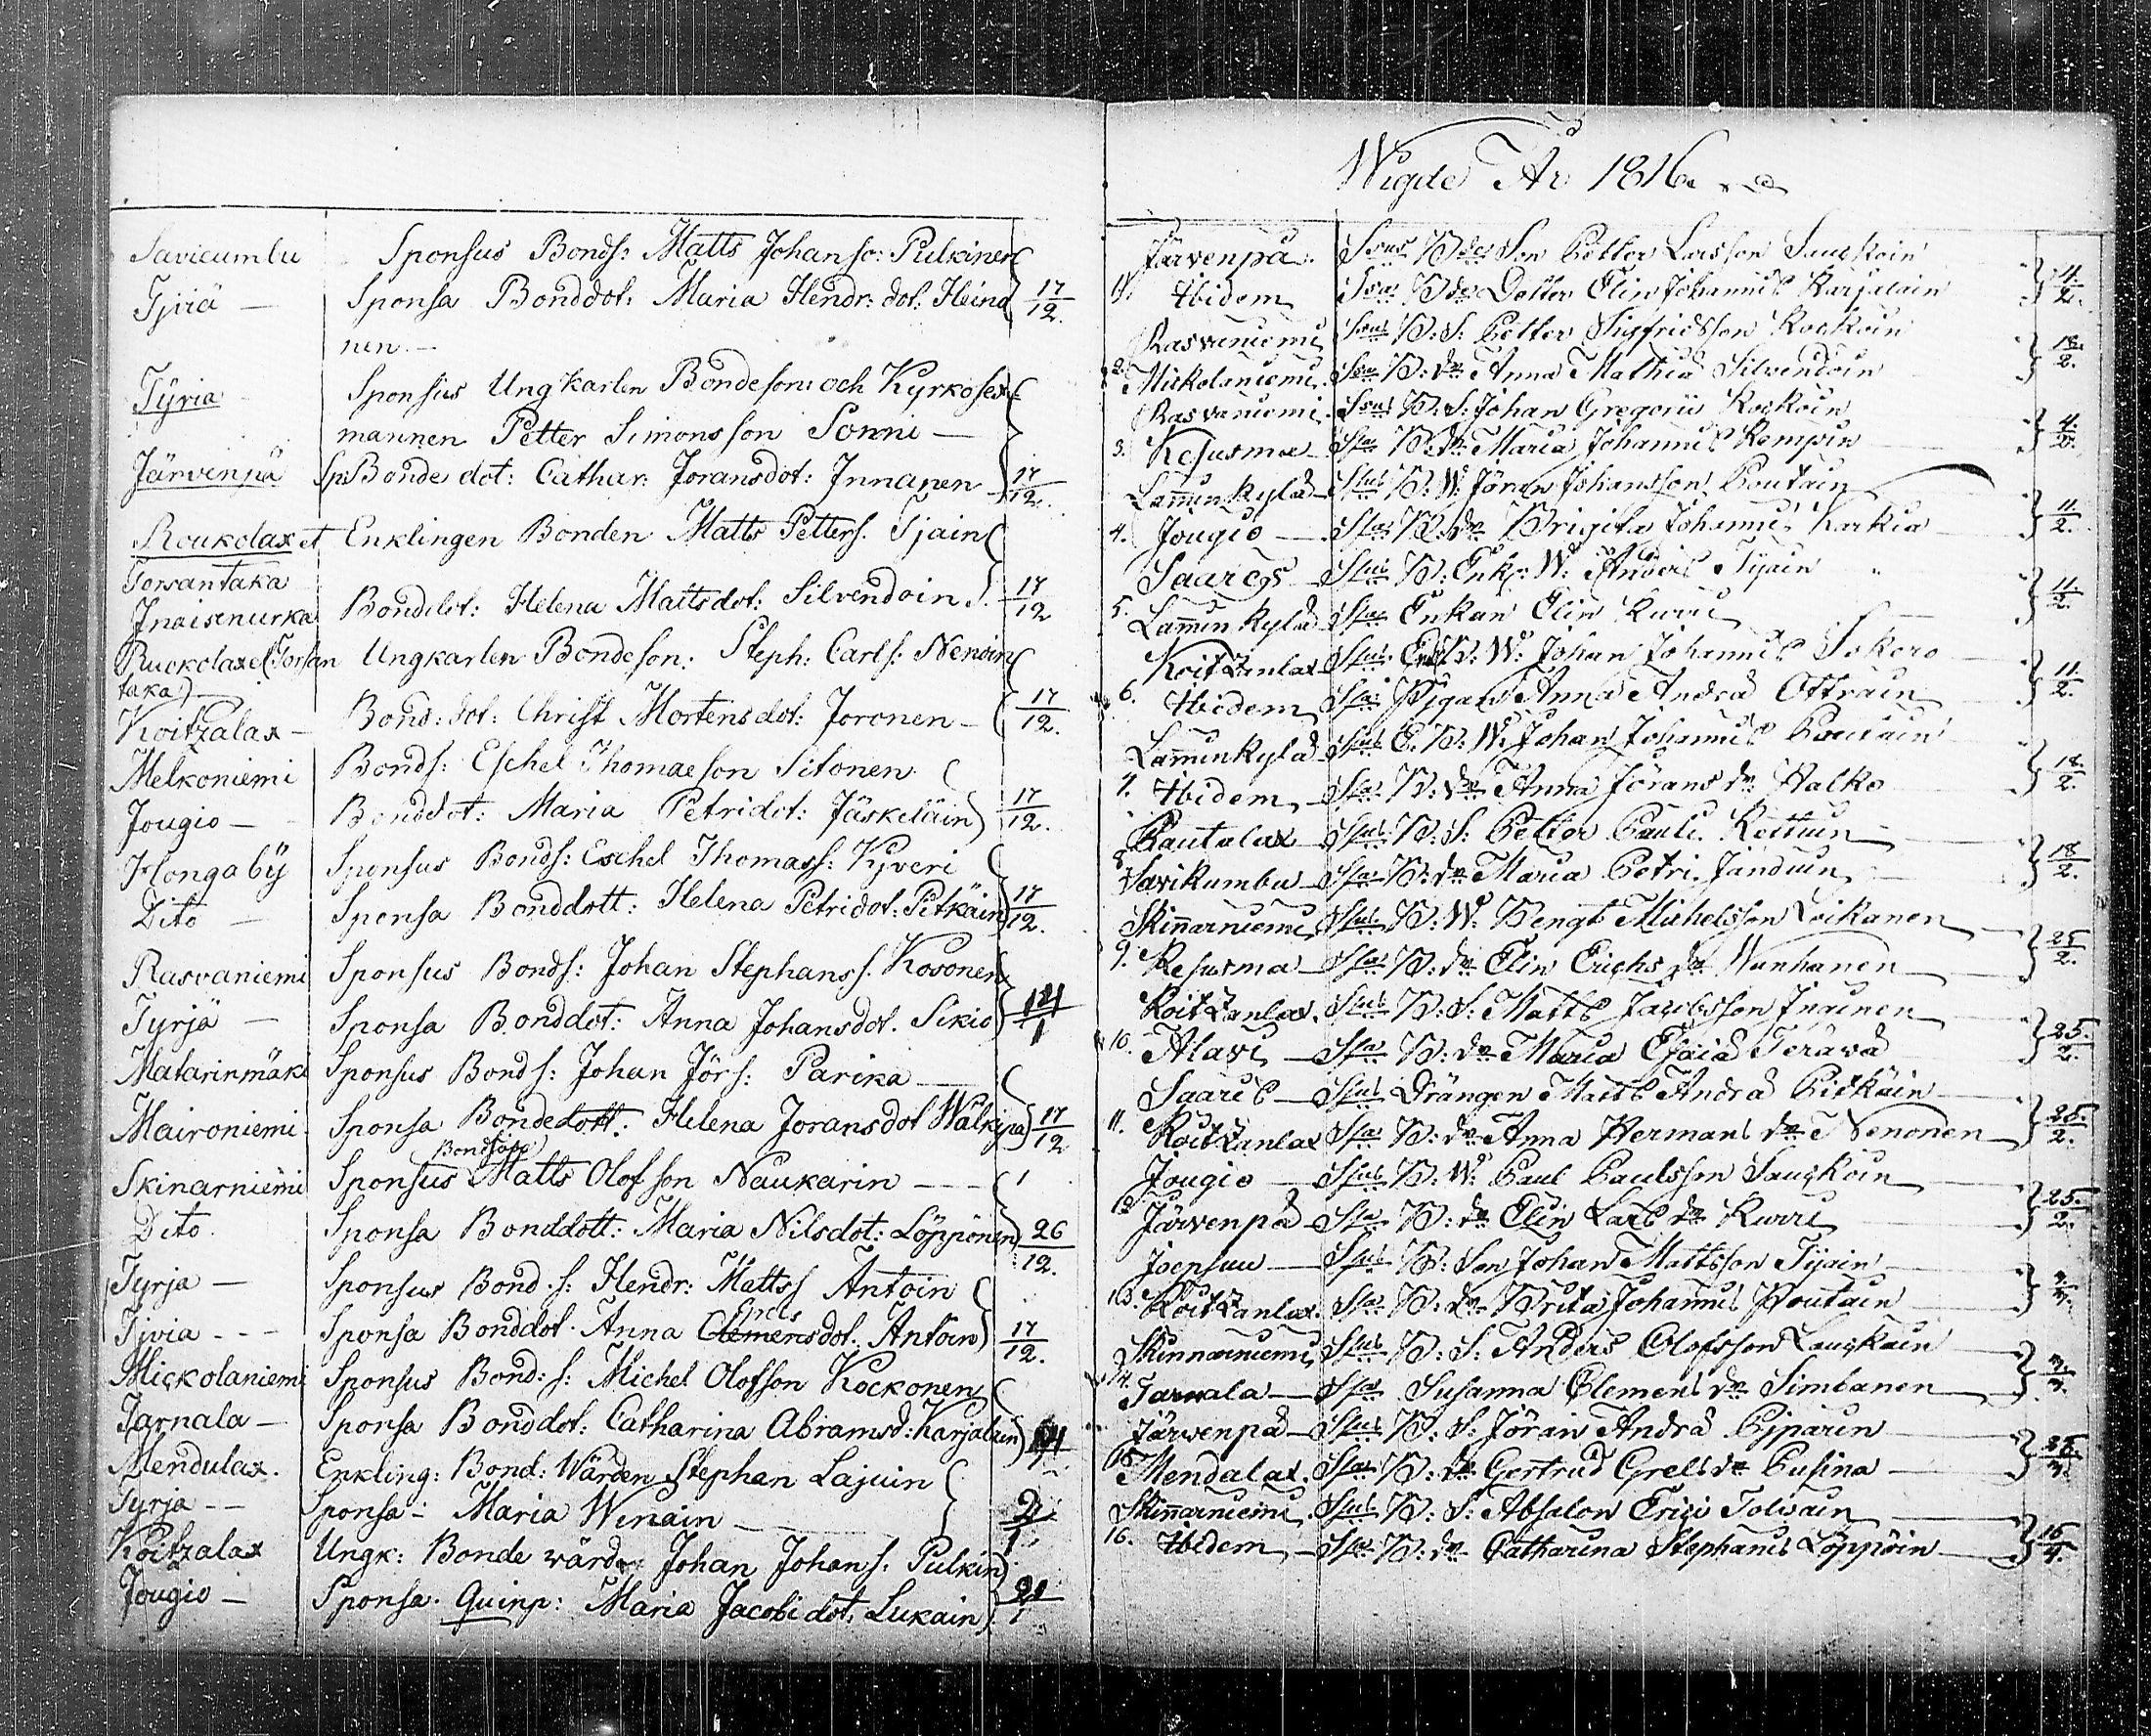 Savicumbu Sponsus Bonds: Matts Johanso: Pulkinen
Tjiriä — Sponsa Bonddot: Maria Hendr: dot: Heino 17/12.
nen. —
Tÿria Sponsus Ungkarlen Bondeson och Kyrkosex
mannen Petter Simonsson Sonni —
Järvenpä Sp: Bonde dot: Cathar: Joransdot: Innanen 17/12.
Roukolax et Enklingen Bonden Matts Petters. Tjain
Torsantaka
Inaisenurka Bonddot: Helena Mattsdot: Silvendoin 17/12
Ruckolaxe (Torsan Ungkarlen Bondeson: Steph: Carls: Nenoin
taka) —
Koitzalax — Bond: dot: Christ Mortensdot: Joronen — 17/12.
Melkoniemi Bonds: Eschel Thomaeson Sitonen
Jougio — Bonddot: Maria Petridot: Jäskeläin 17/12.
Hongabÿ Sponsus Bonds: Eschel Thomass: Kyveri
Dito — Sponsa Bonddott: Helena Petridot: Pitkäin 17/12.
Rasvaniemi Sponsus Bonds: Johan Stephanss. Kosonen
Tyrjä — Sponsa Bonddot: Anna Johansdot. Sikio 14/1
Matarinmäki Sponsus Bonds: Johan Jörs: Parika —
Maironiemi Sponsa Bondedott: Helena Joransdot Wälkipä 17/12
Skinarniemi Sponsus Matts Olofson Naukarin - - -
Dito. Sponsa Bonddott: Maria Nilsdot: Löppönen 26/12.
Tyrja — Sponsus Bond. s: Hendr: Mattss Antoin
Tjvia - - - Sponsa Bonddot. Anna Clemensdot: Antoin 17/12.
Mickolaniemi Sponsus Bond: s: Michel Olofson Kockonen
Tarnala — Sponsa Bonddot: Catharina Abramsd: Karjalain
Mendulax. Enkling: Bond: Wärden Stephan Lajuin
Tyrja - - Sponsa - Maria Winain — 2/1
Koitzalax Ungk: Bonde wärden Johan Johans: Pulkin
Jougio — Sponsa. Quinp: Maria Jacobidot: Lukain 21/1
Wigde År 1816
Järvenpä. Son Petter Larsson Sauckoin
1. Ibidem Dotter Elin Johannis Karjalain 4/2.
Rasvaniemi B: S: Petter Sigfridsson Kockoin
2. Mickolaniemi. B: dr Anna Mathiä Silvendoin 18/2.
Rasvaniemi. B: S: Johan Gregorii Kockoin
3. Kesusmä Spa B: dr Maria Johannis Kempin 4/2.
Laminkylä Spus B: W: Jöran Johansson Poutain
4. Jougio — Spa B: dr Brigita Johannis Karkia 11/2.
Saares Spus B: Enkl: W: Anders Tijain
5. Laminkylä Spa Enkan Elin Kurri 11/2.
Koitzanlax Spus W: Johan Johannis Sokoro
6. Ibidem Spa Pigan Anna Andrä Ottrain 11/2.
Laminkylä Spus E. B: W: Johan Johannis Poutain
7. Ibidem Spa B: dr Anna Jörans dr Halko 18/2.
Pautalax Spus B: S: Petter Pauli Kettuin
8. Savikumbu Spa B: dr Maria Petri Janduin 18/2.
Skinnarniemi Spus B: W: Bengt Michelsson Loikanen
9. Kesusma Spa B: dr Elin Erichs dr Wanhanen 25/2.
Koitzanlax. Spus B: S: Matts Jacobsson Inainen
10. Alavi — Spa B: dr Maria Esaiä Terävä 25/2.
Saaris — Spus Drängen Matts Andrä Pitkäin
11. Koitzanlax Spa B: dr Anna Hermans dr Nenonen 25/2.
Jougio — Spus B: W: Paul Paulsson Sauckoin
12. Järvenpä Spa B: dr Elin Lars dr Kurri 25/2.
Joensuu — Spus B: Son Johan Mattsson Tijain
13. Koitzanlax. Spa B: dr Brita Johannis Poutain
Skinnarniemi Spus B: S: Anders Olofsson Lauckain
14. Tarnala — Spa Susanna Clemens dr Simbanen
Järvenpä Spus B: S: Jöran Andrä Pjparin
15. Mendalax. Spa B: dr Gertrud Grels dr Pusina
Skinnarniemi. Spus B: S: Absalon Erici Tolvain
16. Ibidem — Spa B: dr Catharina Stephanis Löppöin